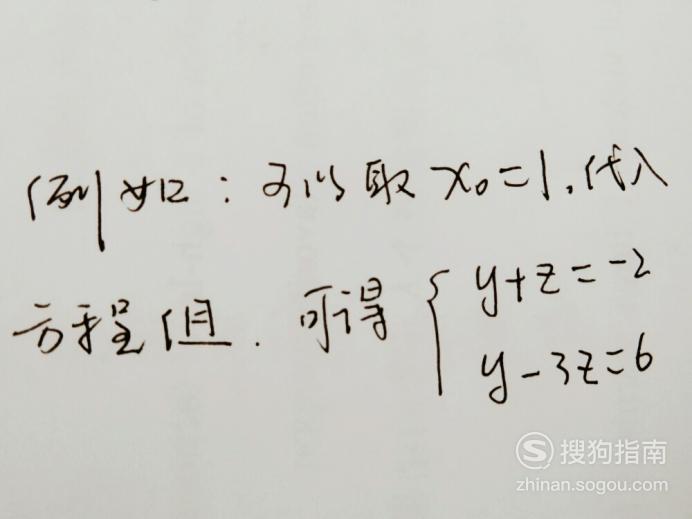 例如：可以取 x₀=1，代入
方程组．可得 { y+z=-2
y-3z=6
搜狗指南
zhinan.sogou.com